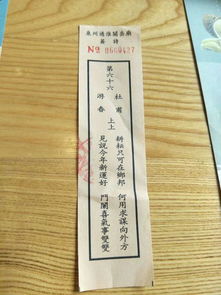 泉州通淮關岳廟
詩
No
第六十六
杜甫
游春
上上
耕耘只可在鄉邦 何用求謀向外方
見說今年新運好 門闌喜氣事雙雙